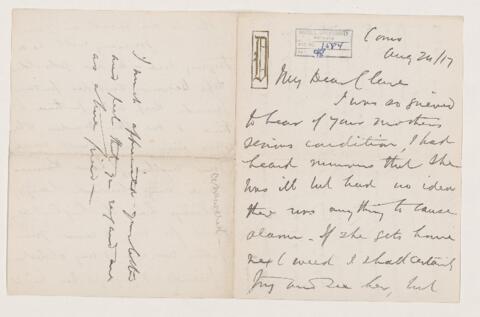 Aug 24/17
My Dear Clare
I was so grieved
to hear of your mothers
serious condition, I had
heard rumours that she
was ill but had no idea
there was anything to cause
alarm. If she gets home
next week I shall certainly
try and see her, but
I much appreciated your letter
and feel that you regard me
as a true friend
answered